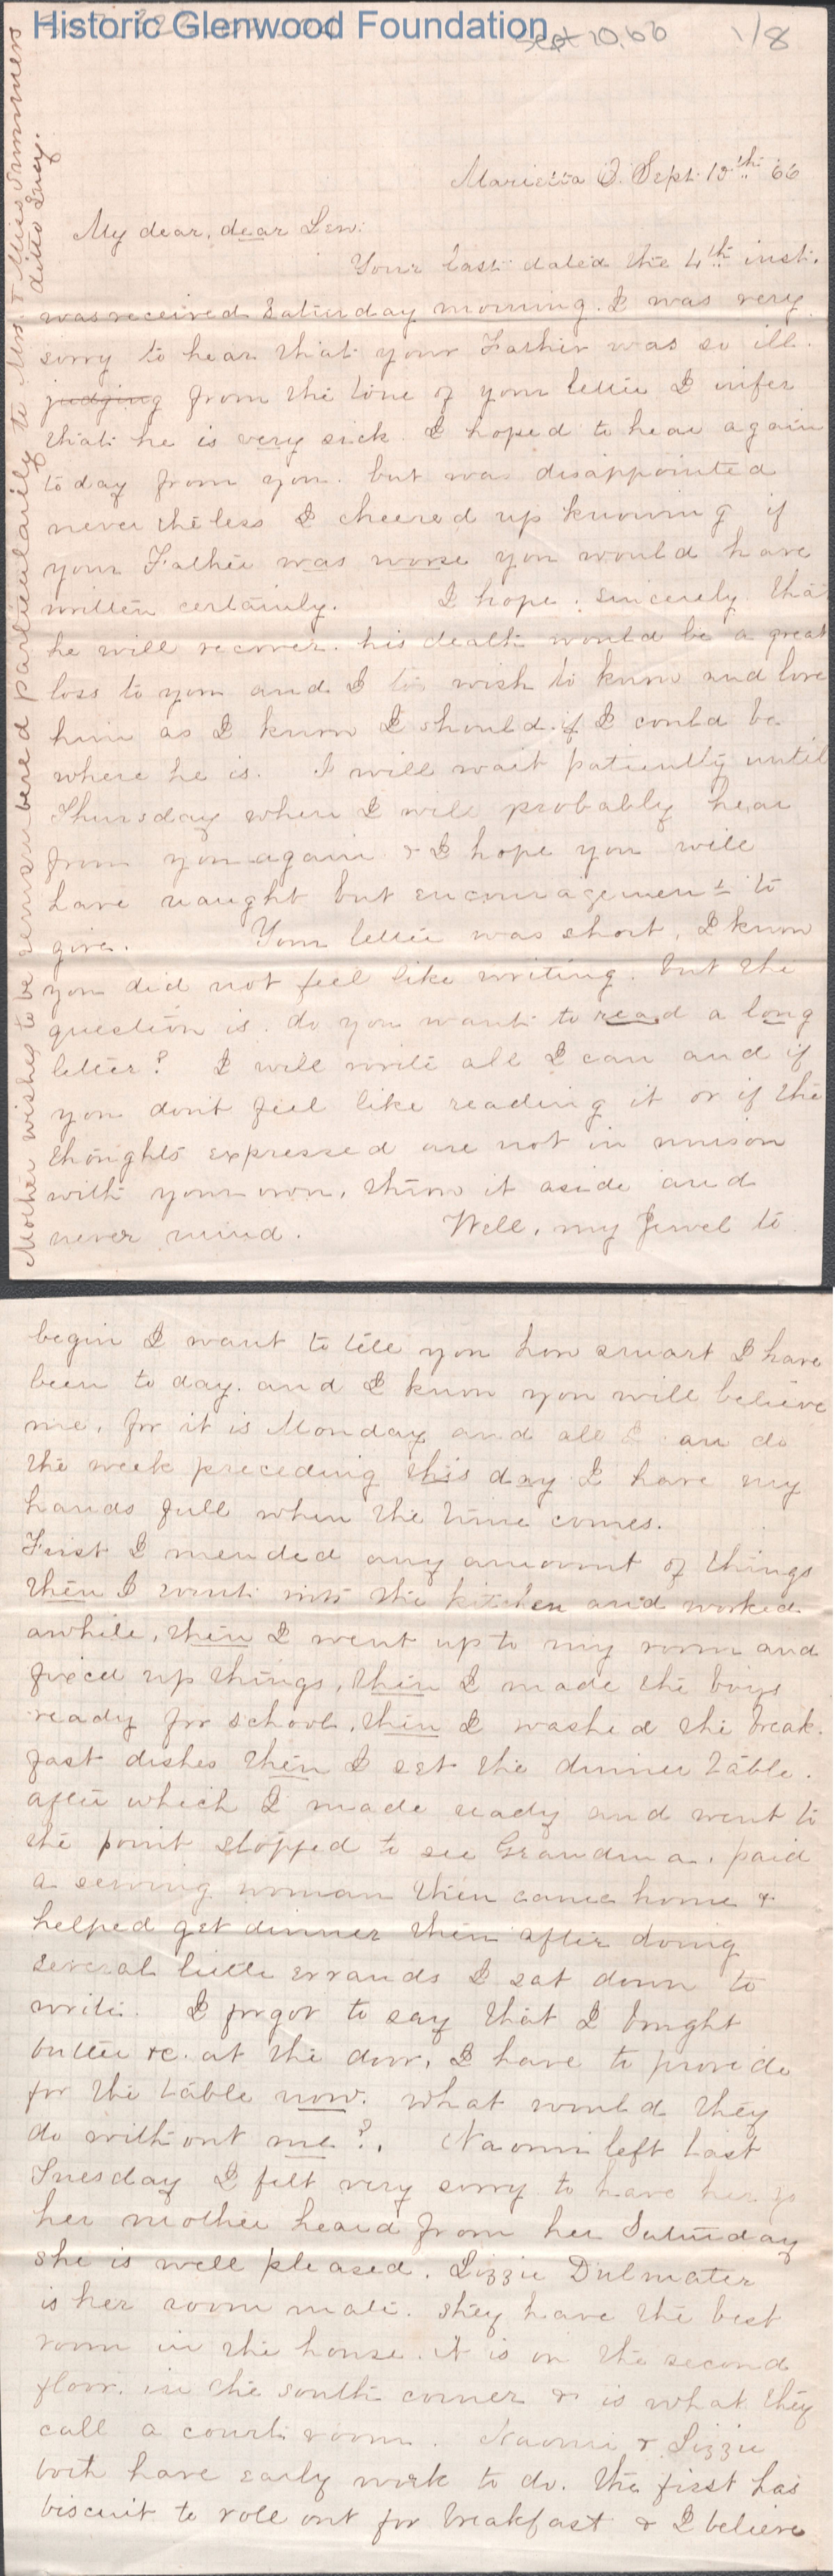 Historic Glenwood Foundation
Sept 10, 66 1/8
Mother wishes to be remembered particularily to Mrs. & Miss Summers
ditto Lucy.
Marietta O. Sept. 10th 66
My dear, dear Lew:
Your last dated the 4th inst.
was received Saturday morning. I was very
sorry to hear that your Father was so ill.
judging from the tone of your letter I infer
that he is very sick. I hoped to hear again
to day from you. but was disappointed
never the less I cheered up knowing if
your Father was worse you would have
written certainly. I hope sincerely that
he will recover. his death would be a great
loss to you and I to wish to know and love
him as I know I should if I could be
where he is. I will wait patiently until
Thursday when I will probably hear
from you again & I hope you will
have naught but encouragement to
give. Your letter was short, I know
you did not feel like writing. but the
question is. do you want to read a long
letter? I will write all I can and if
you dont feel like reading it or if the
thoughts expressed are not in unison
with your own, throw it aside and
never mind. Well, my Jewel to
begin I want to tell you how smart I have
been to day. and I know you will believe
me, for it is Monday and all I can do
the week preceding this day I have my
hands full when the time comes.
First I mended any amount of things
then I went into the kitchen and worked
awhile, then I went up to my room and
fixed up things, then I made the boys
ready for school, then I washed the break-
fast dishes then I set the dinner table.
after which I made ready and went to
the point stopped to see Grandma, paid
a sewing woman then came home &
helped get dinner then after doing
several little errands I sat down to
write. I forgot to say that I bought
butter &c. at the door, I have to provide
for the table now. what would they
do without me?. Naomi left last
Tuesday I felt very sorry to have her go
her mother heard from her Saturday
she is well pleased. Lizzie Dulmater
is her room mate. they have the best
room in the house. it is on the second
floor. in the south corner & is what they
call a court room. Naomi & Lizzie
both have early work to do. the first has
biscuit to roll out for breakfast & I believe